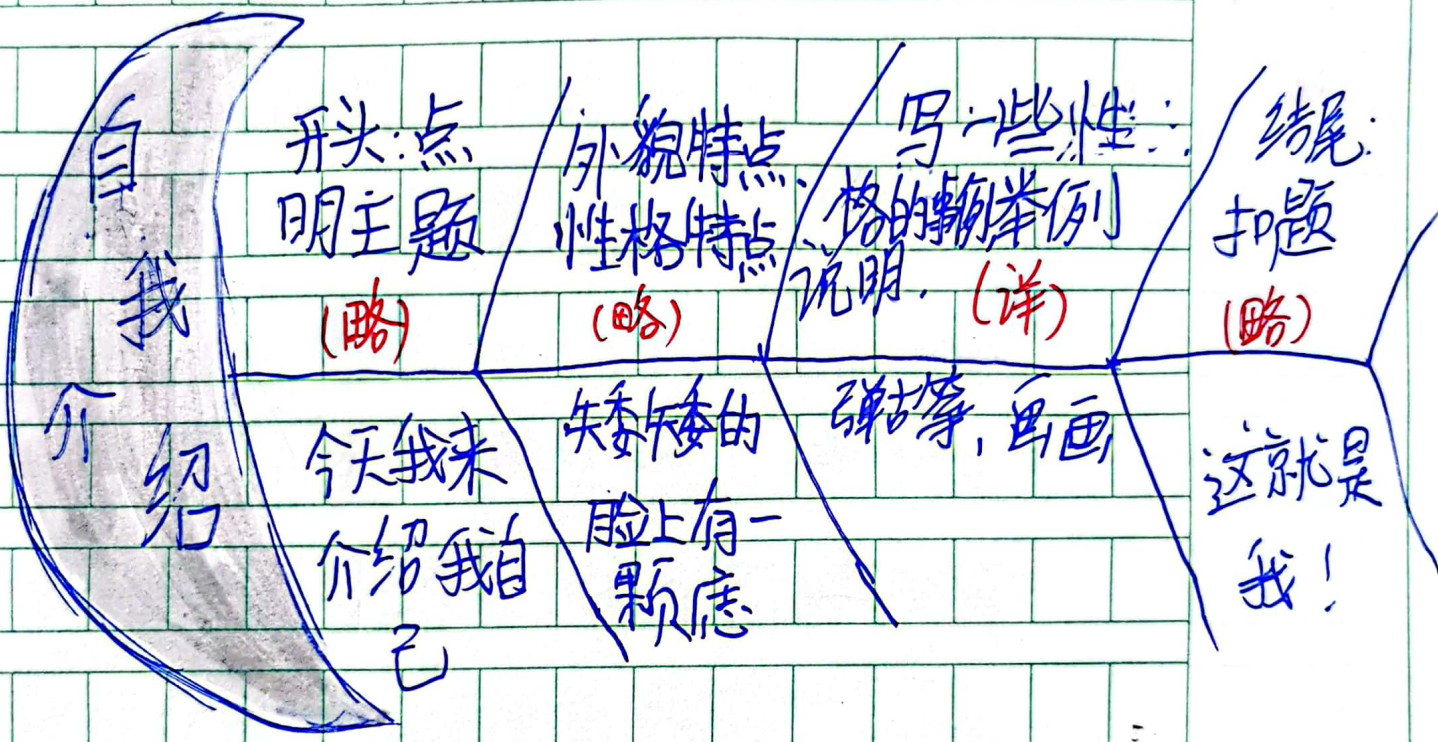 自
我
介
绍
开头:点
明主题
(略)
外貌特点
性格特点
(略)
写一些性
格的事例举例
说明.
(详)
结尾:
扣题
(略)
今天我来
介绍我自
己
矮矮的
脸上有一
颗痣
弹古筝,画画
这就是
我!